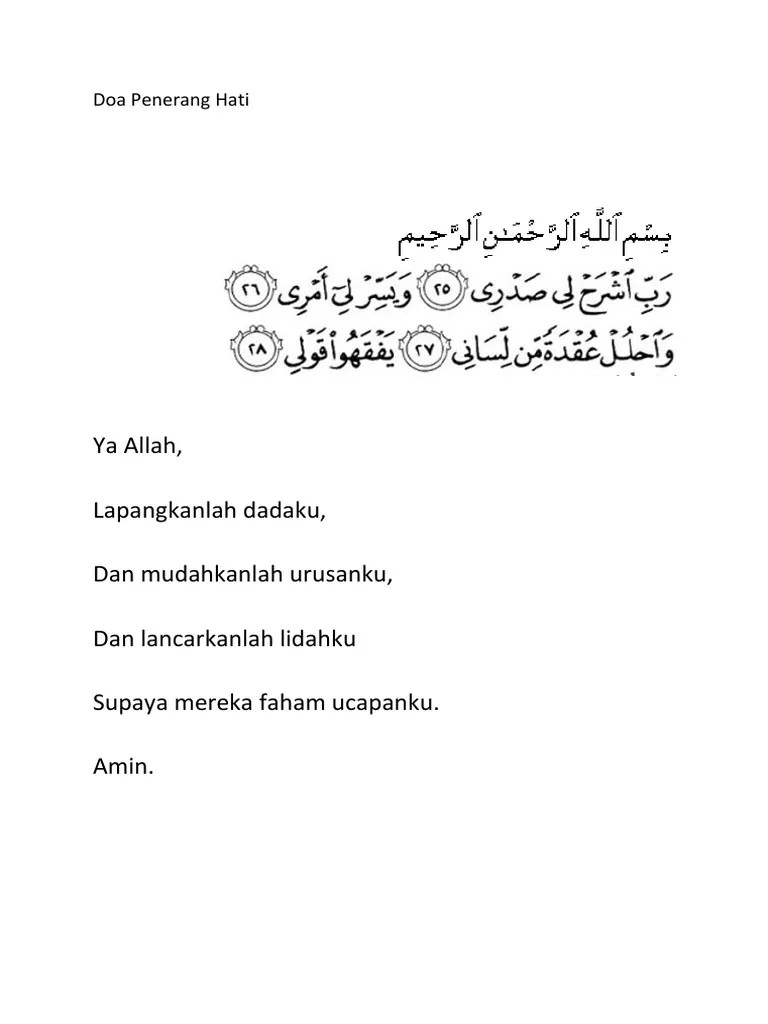 Doa Penerang Hati
بِسْمِ ٱللَّهِ ٱلرَّحْمَـٰنِ ٱلرَّحِيمِ
رَبِّ ٱشْرَحْ لِى صَدْرِى ٢٥ وَيَسِّرْ لِىٓ أَمْرِى ٢٦
وَٱحْلُلْ عُقْدَةً مِّن لِّسَانِى ٢٧ يَفْقَهُوا۟ قَوْلِى ٢٨
Ya Allah,
Lapangkanlah dadaku,
Dan mudahkanlah urusanku,
Dan lancarkanlah lidahku
Supaya mereka faham ucapanku.
Amin.